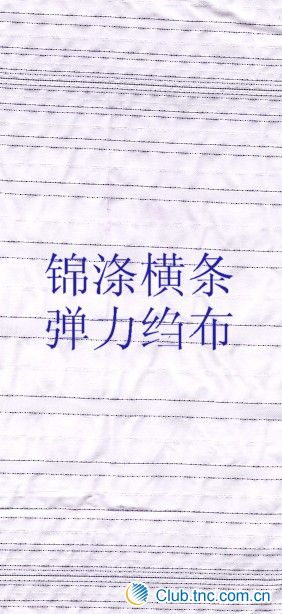 锦涤横条
弹力绉布
Club.tnc.com.cn